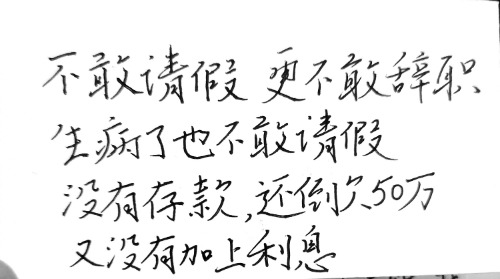 不敢请假 更不敢辞职
生病了也不敢请假
没有存款,还倒欠50万
又没有加上利息